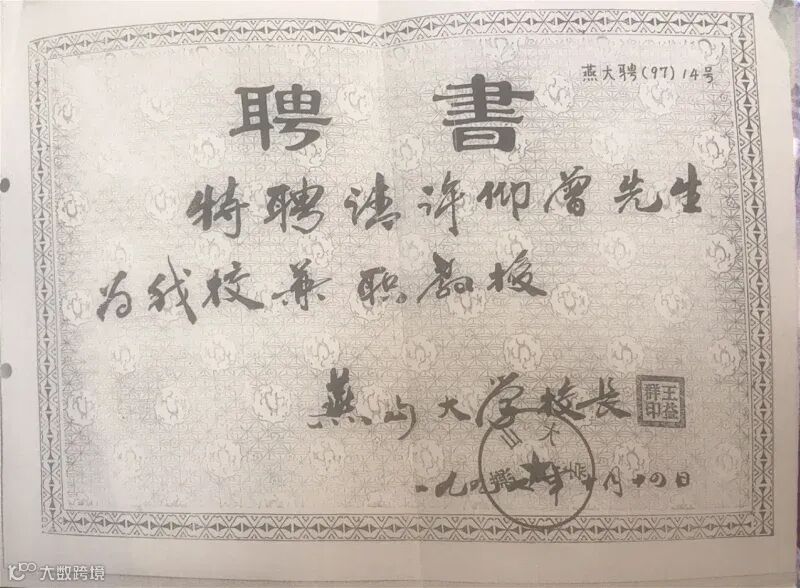 燕大聘(97)14号
聘书
特聘请许仰曾先生
为我校兼职教授
燕山大学校长
王益群印
一九九七年十月十四日
大数跨境